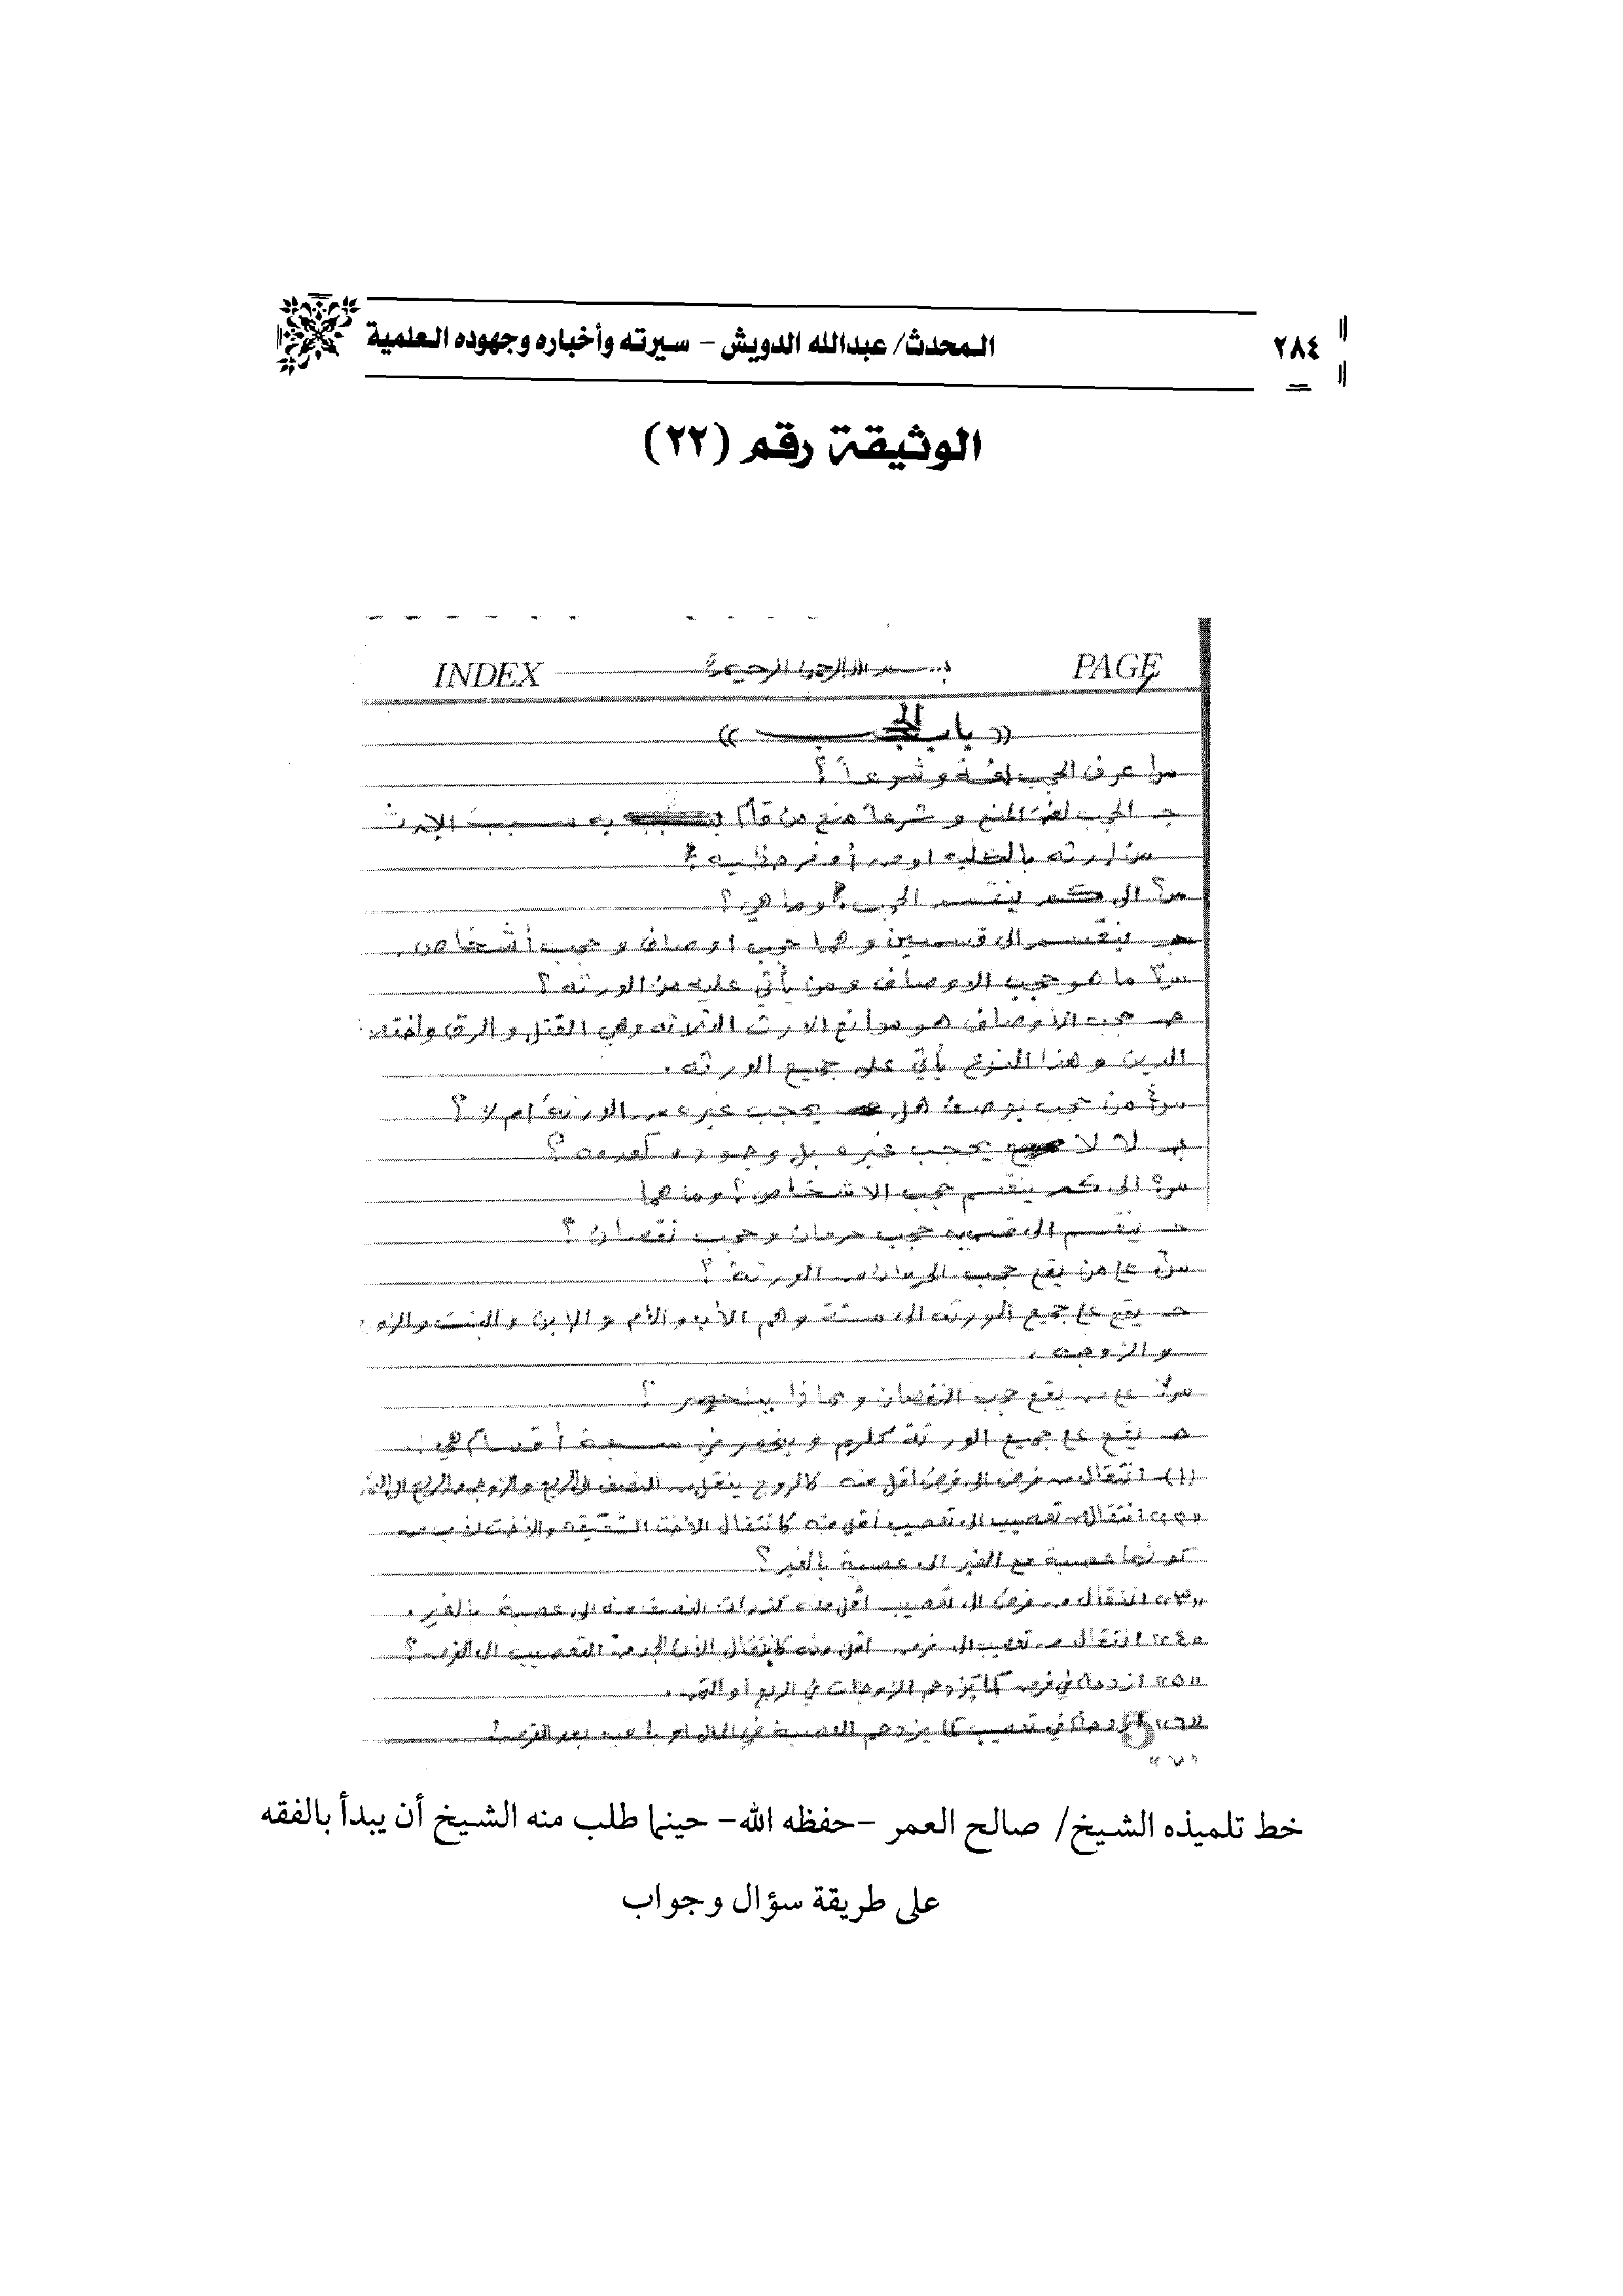 المحدث/ عبدالله الدويش - سيرته وأخباره وجهوده العلمية
٢٨٤
الوثيقة رقم (٢٢)
INDEX بسم الله الرحمن الرحيم PAGE
«باب الحجب»
س١ عرف الحجب لغة وشرعاً؟
جـ الحجب لغة المنع وشرعاً منع من قام به سبب الإرث
من ارثه بالكليه او من أوفر حظيه؟
س٢ الى كم ينقسم الحجب؟ وما هي؟
جـ ينقسم الى قسمين وهما حجب اوصاف وحجب أشخاص.
س٣ ما هو حجب الاوصاف ومن يأتي عليه من الورثه؟
جـ حجب الأوصاف هو موانع الارث الثلاثه وهي القتل والرق واختلا
الدين وهذا النوع يأتي على جميع الورثه.
س٤ من حجب بوصف هل يحجب غيره من الورثة أم لا؟
جـ لا لا يحجب غيره بل وجوده كعدمه؟
س٥ الى كم ينقسم حجب الاشخاص؟ وما هما
جـ ينقسم الى قسمين حجب حرمان وحجب نقصان؟
س٦ على من يقع حجب الحرمان من الورثة؟
جـ يقع على جميع الورثه الا ستة وهم الأب والأم والإبن والبنت والزوج
والزوجه.
س٧ على من يقع حجب النقصان وبماذا ينحصر؟
جـ يقع على جميع الورثة كلهم وينحصر في سبعة أقسام هي:
(١) انتقال من فرض الى فرض أقل منه كالزوج ينقل من النصف الى الربع والزوجه من الربع الى الثمن
«٢» انتقال من تعصيب الى تعصيب أقل منه كانتقال الاخت الشقيقه والاخت لاب من
كونها عصبة مع الغير الى عصبة بالغير؟
«٣» انتقال من فرض الى تعصيب اقل منه كذوات النصف منه الى عصبة بالغير.
«٤» انتقال من تعصيب الى فرض اقل منه كانتقال الأب والجد من التعصيب الى الفرض؟
«٥» ازدحام في فرض كما تزدحم الزوجات في الربع أو الثمن.
«٦» ازدحام في تعصيب كما يزدحم العصبة في المال
«٧»
خط تلميذه الشيخ/ صالح العمر -حفظه الله- حينما طلب منه الشيخ أن يبدأ بالفقه
على طريقة سؤال وجواب